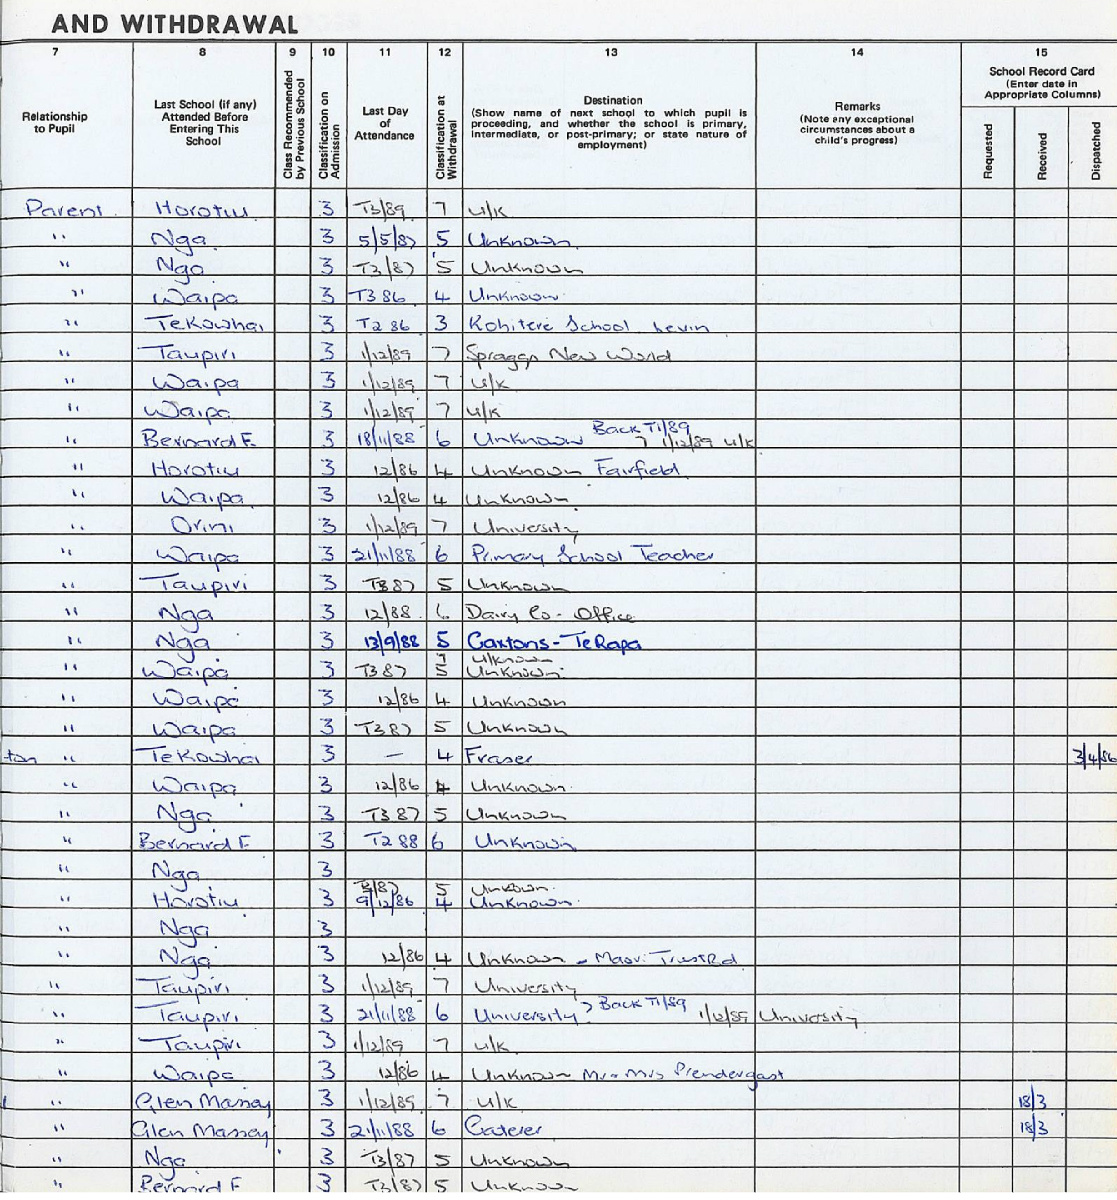 AND WITHDRAWAL
7 8 9 10 11 12 13 14 15
Relationship to Pupil
Last School (if any) Attended Before Entering This School
Class Recommended by Previous School
Classification on Admission
Last Day of Attendance
Classification at Withdrawal
Destination
(Show name of next school to which pupil is proceeding, and whether the school is primary, intermediate, or post-primary; or state nature of employment)
Remarks
(Note any exceptional circumstances about a child's progress)
School Record Card
(Enter date in Appropriate Columns)
Requested
Received
Dispatched
Parent Horotiu 3 T3/89 7 U/K
" Nga 3 5/5/87 5 Unknown
" Nga 3 T3/87 5 Unknown
" Waipa 3 T3 86 4 Unknown
" Te Kowhai 3 T2 86 3 Kohitere School Levin
" Taupiri 3 1/12/89 7 Spraggn New World
" Waipa 3 1/12/89 7 U/K
" Waipa 3 1/12/89 7 U/K
" Bernard F. 3 18/11/88 6 Unknown Back T1/89 7 1/12/89 U/K
" Horotiu 3 12/86 4 Unknown Fairfield
" Waipa 3 12/86 4 Unknown
" Orini 3 1/12/89 7 University
" Waipa 3 21/11/88 6 Primary School Teacher
" Taupiri 3 T3 87 5 Unknown
" Nga 3 12/88 6 Dairy Co-Office
" Nga 3 13/9/88 5 Caxtons - Te Rapa
7 U/known
" Waipa 3 T3 87 5 Unknown
" Waipa 3 12/86 4 Unknown
" Waipa 3 T3 87 5 Unknown
ton " Te Kowhai 3 - 4 Fraser 3/4/86
" Waipa 3 12/86 4 Unknown
" Nga 3 T3 87 5 Unknown
" Bernard F. 3 T2 88 6 Unknown
" Nga 3
T3/87 5 Unknown
" Horotiu 3 9/12/86 4 Unknown
" Nga 3
" Nga 3 12/86 4 Unknown - Maori Trust Rd
" Taupiri 3 1/12/89 7 University
" Taupiri 3 21/11/88 6 University > Back T1/89 1/12/89 University
" Taupiri 3 1/12/89 7 U/K
" Waipa 3 12/86 4 Unknown Mr & Mrs Prendergast
" Glen Massey 3 1/12/89 7 U/K 18/3
" Glen Massey 3 21/11/88 6 Caterer 18/3
" Nga 3 T3/87 5 Unknown
" Bernard F 3 T3/87 5 Unknown